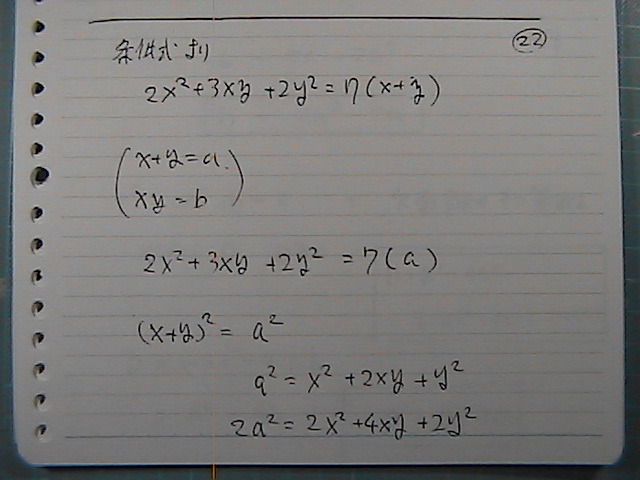 22
条件式より
2x²+3xy+2y²=7(x+y)
x+y=a
xy=b
2x²+3xy+2y²=7(a)
(x+y)²=a²
a²=x²+2xy+y²
2a²=2x²+4xy+2y²